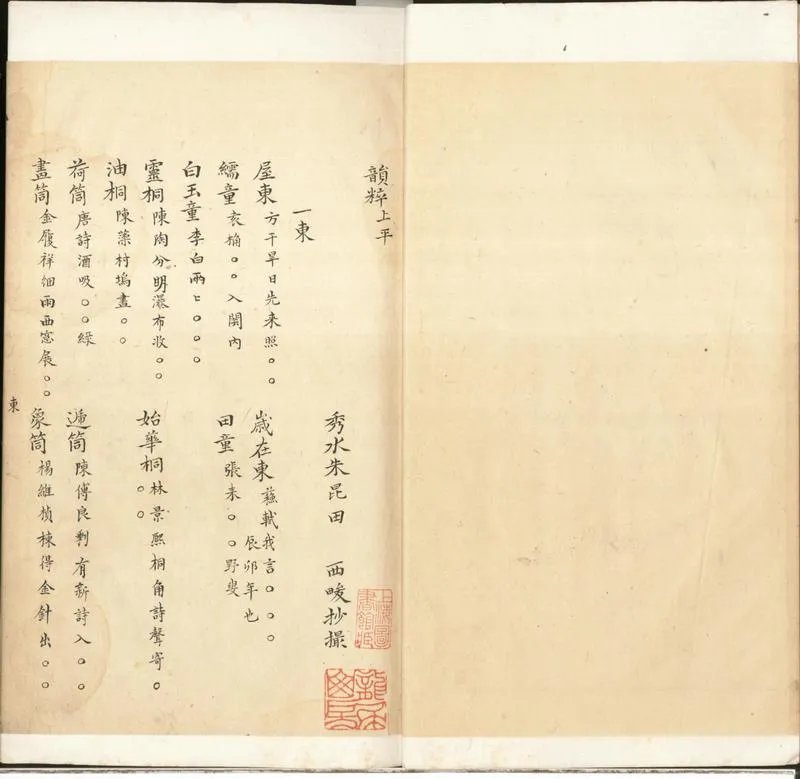 韻粹上平
秀水朱昆田 西畯抄撮
一東
屋東 方干早日先来照。。 歳在東 蘇軾我言。。。辰卯年也
繻童 。。入關内 田童 張耒。。野叟
白玉童 李白兩ヒ。。。
靈桐 陳陶分明瀑布收。。 始華桐 林景熙桐角詩聲寄。。。
油桐 陳藻村塢畫。。
荷筒 唐詩酒吸。。緑 遞筒 陳傅良剩有新詩入。。
畫筒 金履祥細雨西窓展。。 象筒 楊維楨棟得金針出。。
東
上海圖書館藏